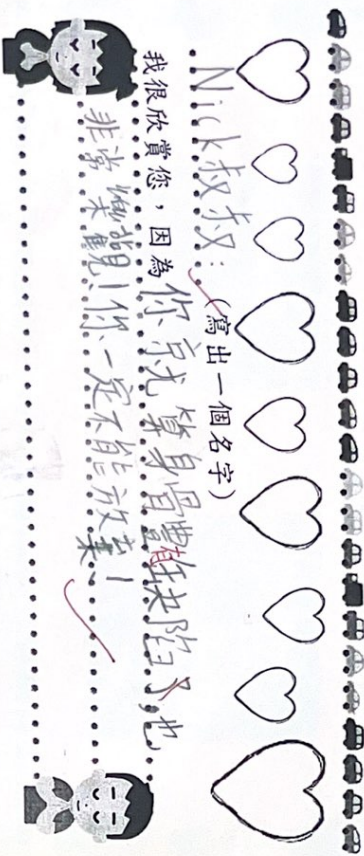 Nick叔叔：(寫出一個名字)
我很欣賞您，因為你就算身體有缺陷，也
非常樂觀！你一定不能放棄！